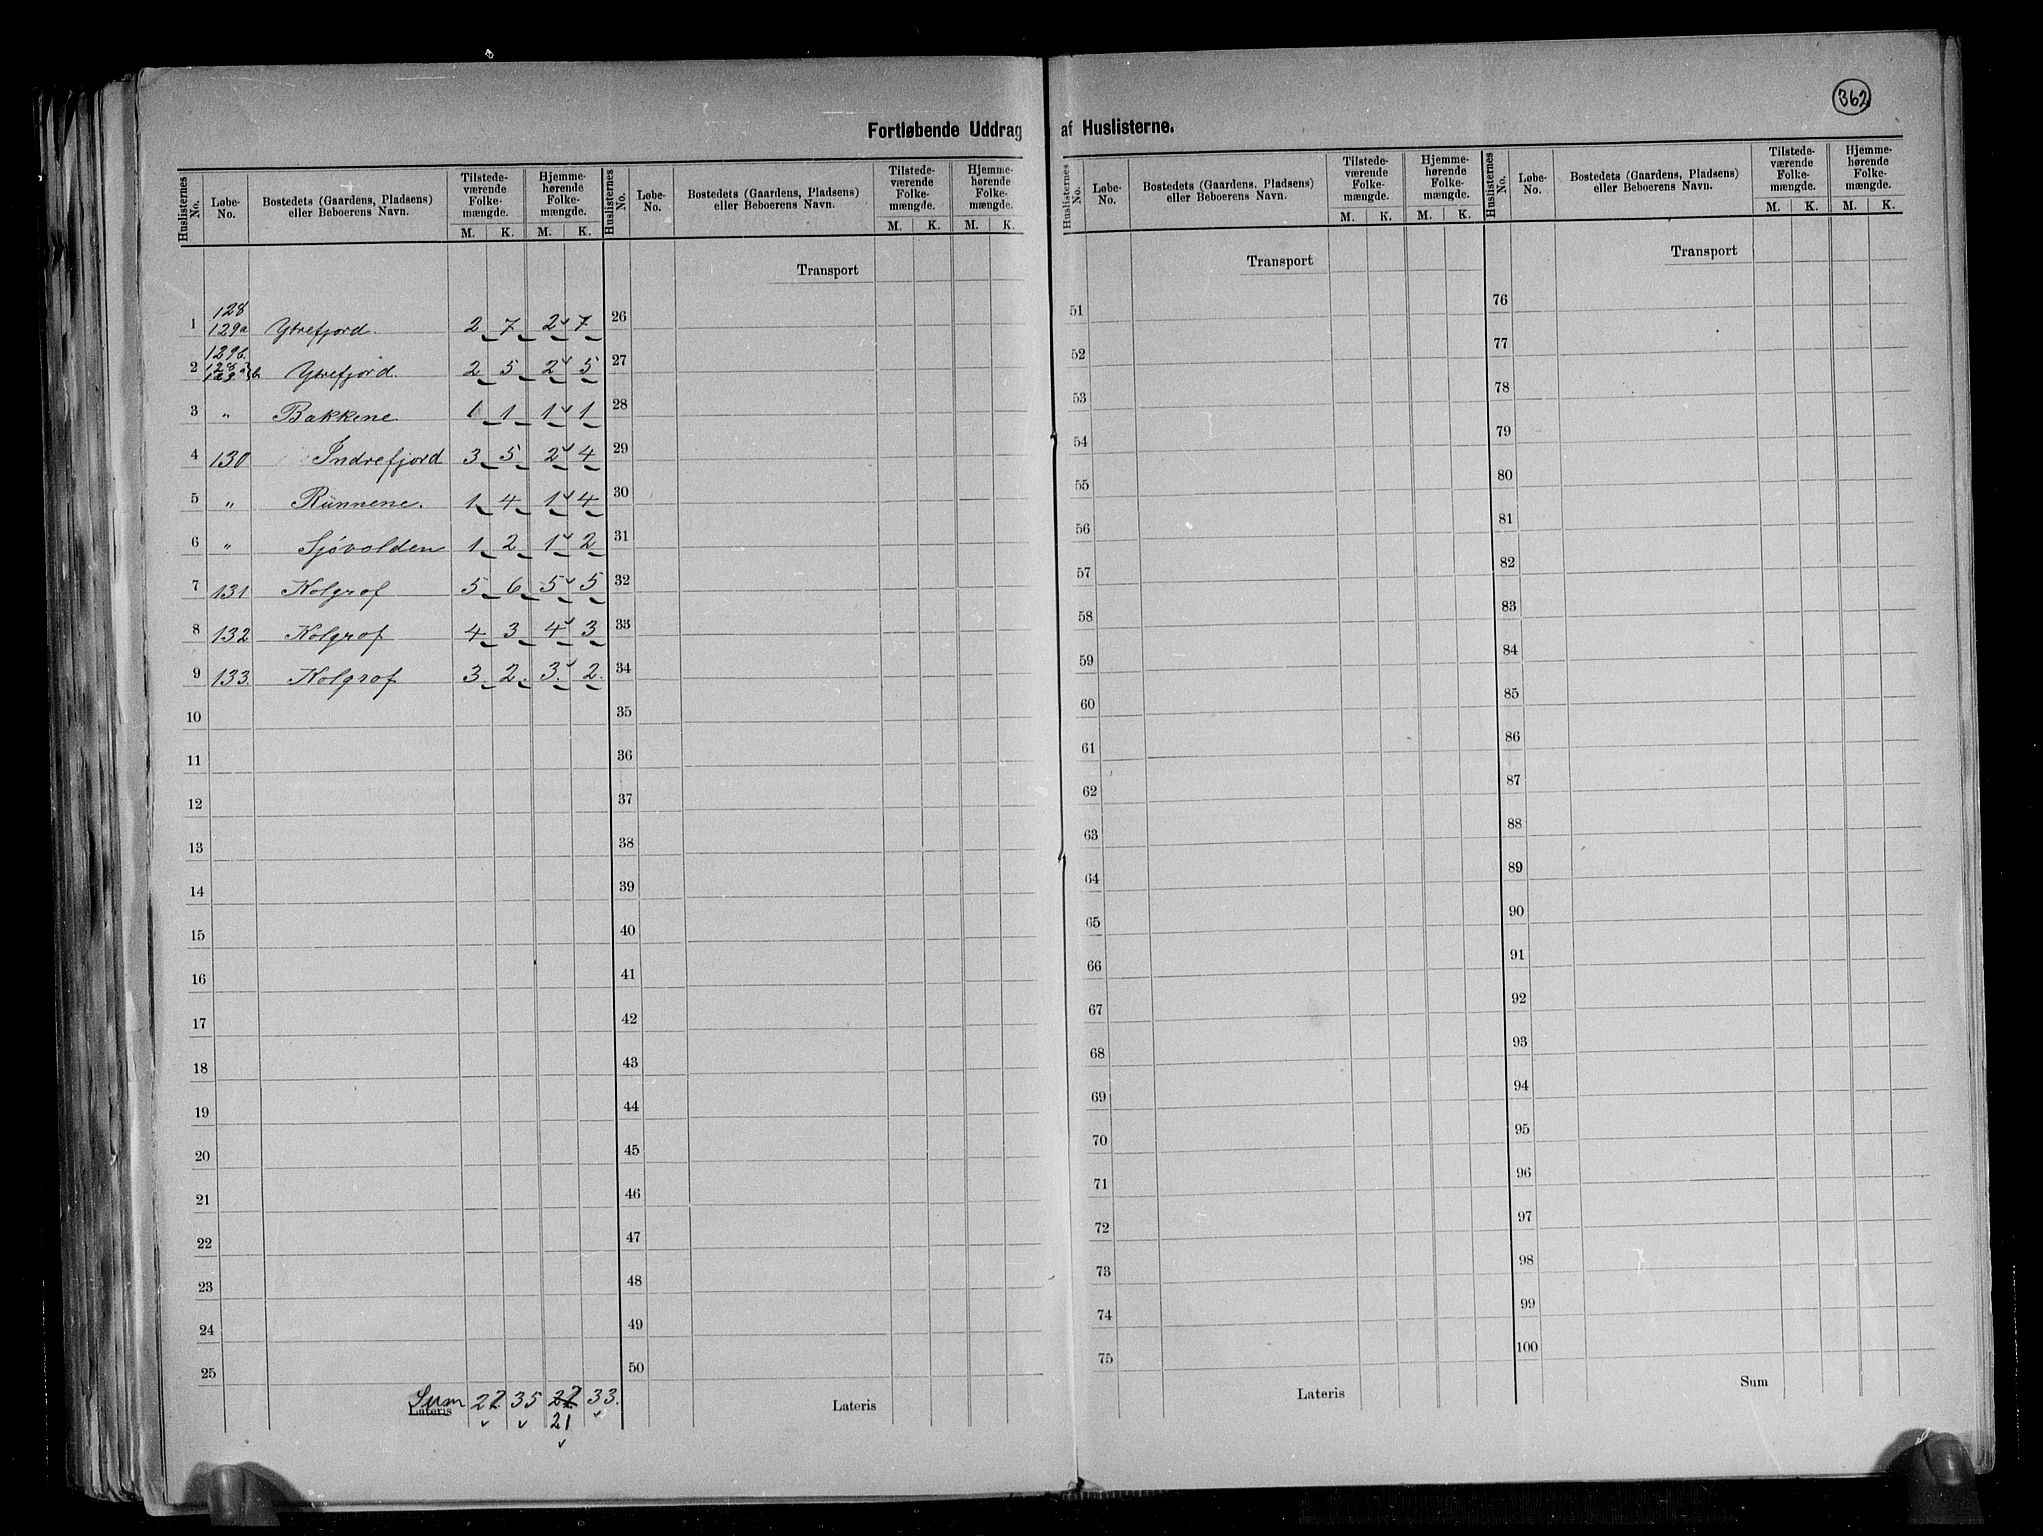 362
Fortløbende Uddrag af Huslisterne.
Huslisternes No. | Løbe-No. | Bostedets (Gaardens, Pladsens) eller Beboerens Navn. | Tilstedeværende Folkemængde. M. K. | Hjemmehørende Folkemængde. M. K.
Huslisternes No. | Løbe-No. | Bostedets (Gaardens, Pladsens) eller Beboerens Navn. | Tilstedeværende Folkemængde. M. K. | Hjemmehørende Folkemængde. M. K.
Huslisternes No. | Løbe-No. | Bostedets (Gaardens, Pladsens) eller Beboerens Navn. | Tilstedeværende Folkemængde. M. K. | Hjemmehørende Folkemængde. M. K.
Huslisternes No. | Løbe-No. | Bostedets (Gaardens, Pladsens) eller Beboerens Navn. | Tilstedeværende Folkemængde. M. K. | Hjemmehørende Folkemængde. M. K.
1 128 129a Ytrefjord. 2 7 2 7
2 129b. Ytrefjord. 2 5 2 5
3 " Bakkene 1 1 1 1
4 130 Indrefjord 3 5 2 4
5 " Runnene. 1 4 1 4
6 " Sjøvolden 1 2 1 2
7 131 Kolgrof 5 6 5 5
8 132 Kolgrof 4 3 4 3
9 133. Kolgrof 3. 2. 3. 2.
10
11
12
13
14
15
16
17
18
19
20
21
22
23
24
25
Sum Lateris 22 35 22 33.
21
Transport
26
27
28
29
30
31
32
33
34
35
36
37
38
39
40
41
42
43
44
45
46
47
48
49
50
Lateris
Transport
51
52
53
54
55
56
57
58
59
60
61
62
63
64
65
66
67
68
69
70
71
72
73
74
75
Lateris
Transport
76
77
78
79
80
81
82
83
84
85
86
87
88
89
90
91
92
93
94
95
96
97
98
99
100
Sum